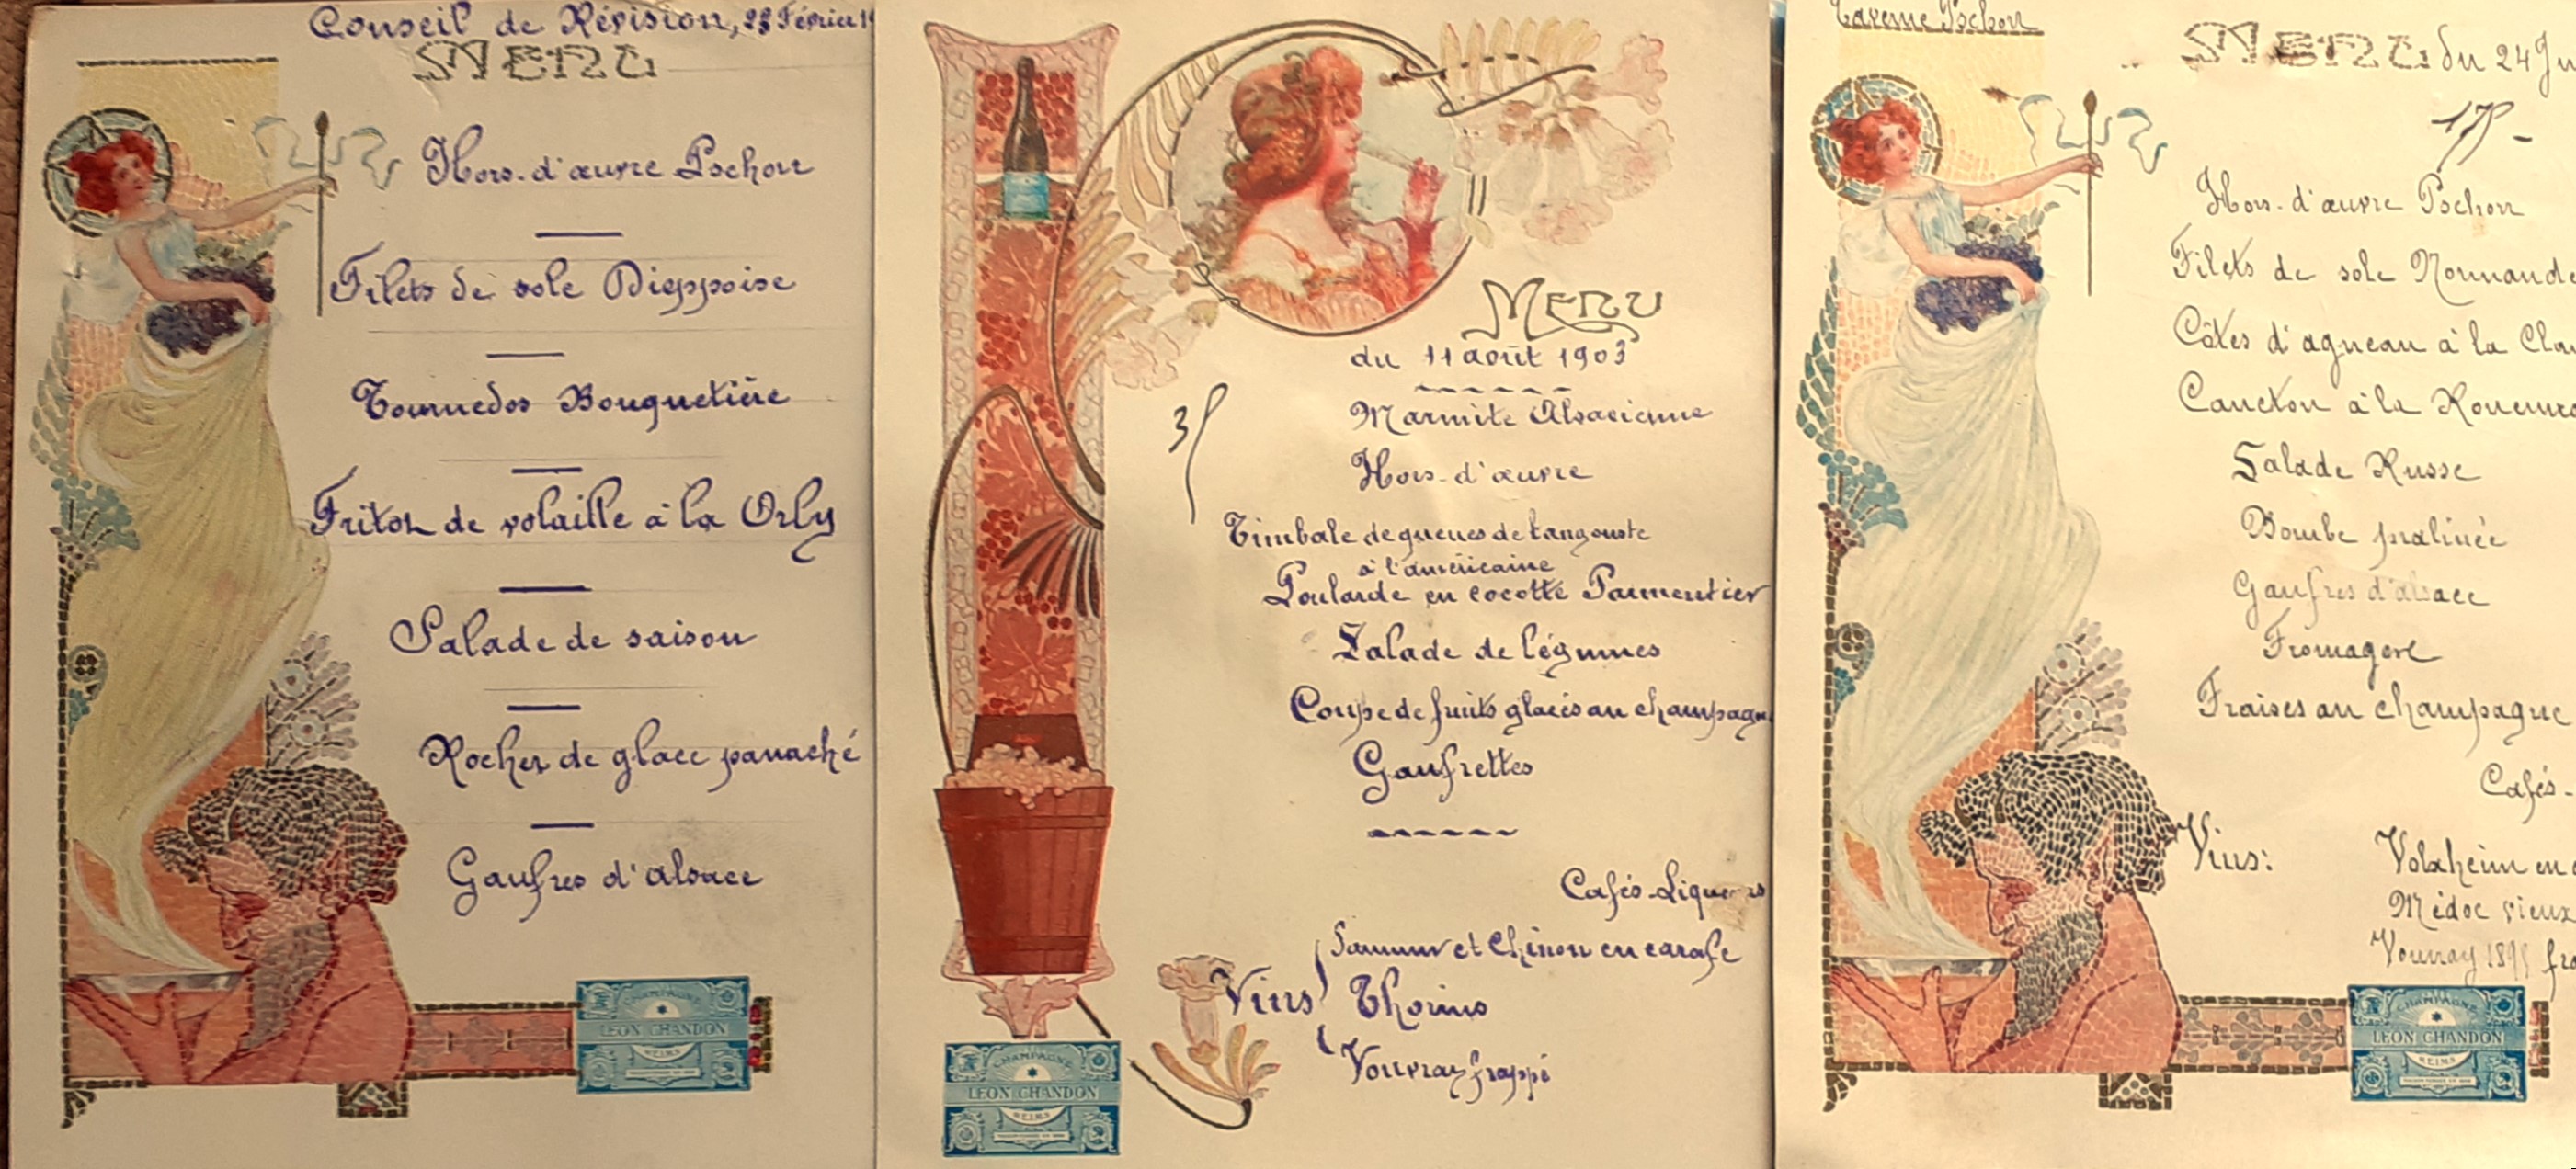 Conseil de Révision, 28 Février 19
MENU
Hors-d'œuvre Pschorr
Filets de sole Dieppoise
Tournedos Bouquetière
Fritot de volaille à la Orly
Salade de saison
Rocher de glace panaché
Gaufres d'alsace
CHAMPAGNE
LEON CHANDON
REIMS
MENU
du 11 août 1903
3f
Marmite Alsacienne
Hors-d'œuvre
Timbale de queues de langouste
à l'américaine
Poularde en cocotte Parmentier
Salade de légumes
Coupe de fruits glacés au champagn
Gaufrettes
Cafés-Liqueurs
Saumur et Chinon en carafe
Vins Thorins
Vouvray frappé
CHAMPAGNE
LEON CHANDON
REIMS
Taverne Pschorr
MENU du 24 Ju
Hors-d'œuvre Pschorr
Filets de sole Normande
Côtes d'agneau à la Cla
Caneton à la Rouenna
Salade Russe
Bombe pralinée
Gaufres d'alsace
Fromagere
Fraises au champagne
Cafés-
Vins: Volxheim en c
Médoc vieux
Vouvray fra
CHAMPAGNE
LEON CHANDON
REIMS